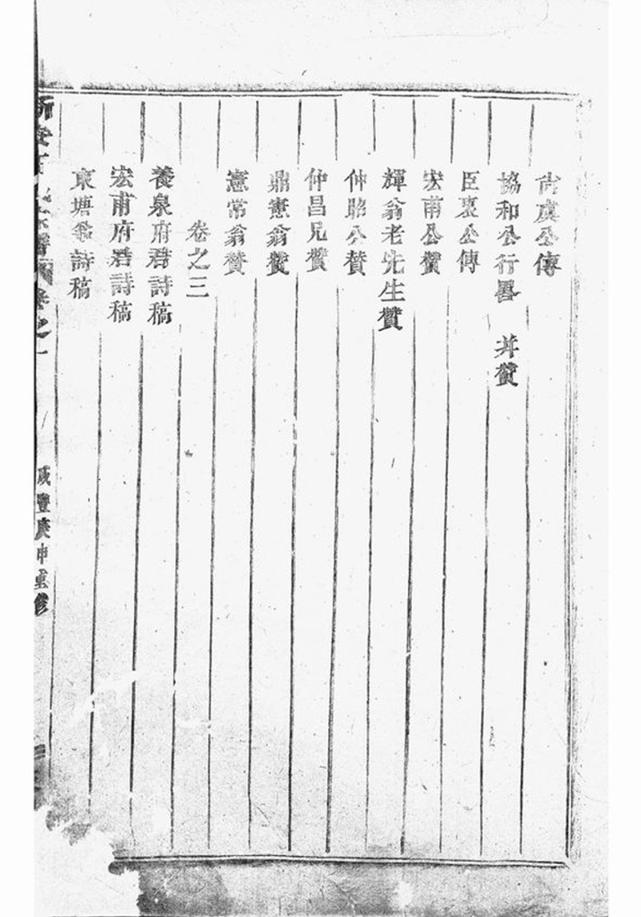 尚虞公傳
協和公行畧 并贊
臣裏公傳
宏甫公贊
輝翁老先生贊
仲昭公贊
仲昌兄贊
鼎憲翁贊
憲常翁贊
卷之三
養泉府君詩稿
宏甫府君詩稿
東塘翁詩稿
新安 卷之一
咸豐庚申重修